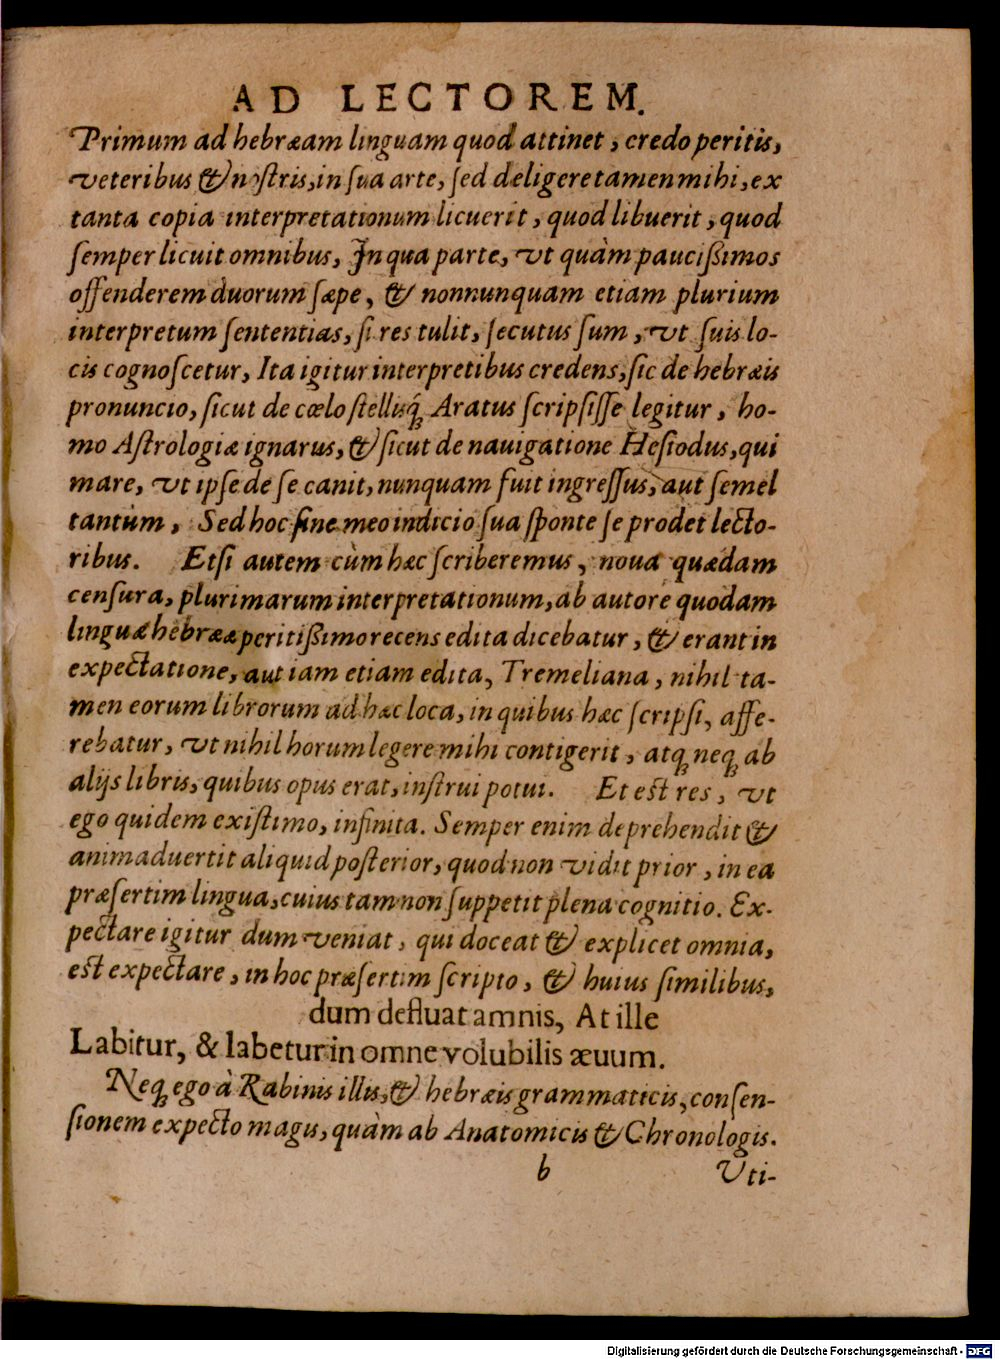 AD LECTOREM.
Primum ad hebræam linguam quod attinet, credo peritis,
veteribus & noſtris, in ſua arte, ſed deligere tamen mihi, ex
tanta copia interpretationum licuerit, quod libuerit, quod
ſemper licuit omnibus, In qua parte, vt quàm pauciſsimos
offenderem duorum ſæpe, & nonnunquam etiam plurium
interpretum ſententias, ſi res tulit, ſecutus ſum, vt ſuis lo-
cis cognoſcetur, Ita igitur interpretibus credens, ſic de hebræis
pronuncio, ſicut de cœlo ſtellisq́; Aratus ſcripſiſſe legitur, ho-
mo Aſtrologiæ ignarus, & ſicut de nauigatione Heſiodus, qui
mare, vt ipſe de ſe canit, nunquam fuit ingreſſus, aut ſemel
tantùm, Sed hoc ſine meo indicio ſua ſponte ſe prodet lecto-
ribus. Etſi autem cùm hæc ſcriberemus, noua quædam
cenſura, plurimarum interpretationum, ab autore quodam
linguæ hebrææ peritiſsimo recens edita dicebatur, & erant in
expectatione, aut iam etiam edita, Tremeliana, nihil ta-
men eorum librorum ad hæc loca, in quibus hæc ſcripſi, affe-
rebatur, vt nihil horum legere mihi contigerit, atq; neq; ab
alijs libris, quibus opus erat, inſtrui potui. Et eſt res, vt
ego quidem exiſtimo, infinita. Semper enim deprehendit &
animaduertit aliquid poſterior, quod non vidit prior, in ea
præſertim lingua, cuius tam non ſuppetit plena cognitio. Ex-
pectare igitur dum veniat, qui doceat & explicet omnia,
eſt expectare, in hoc præſertim ſcripto, & huius ſimilibus,
dum defluat amnis, At ille
Labitur, & labetur in omne volubilis æuum.
Neq; ego à Rabinis illis, & hebræis grammaticis, conſen-
ſionem expecto magis, quàm ab Anatomicis & Chronologis.
b Vti-
Digitalisierung gefördert durch die Deutsche Forschungsgemeinschaft - DFG